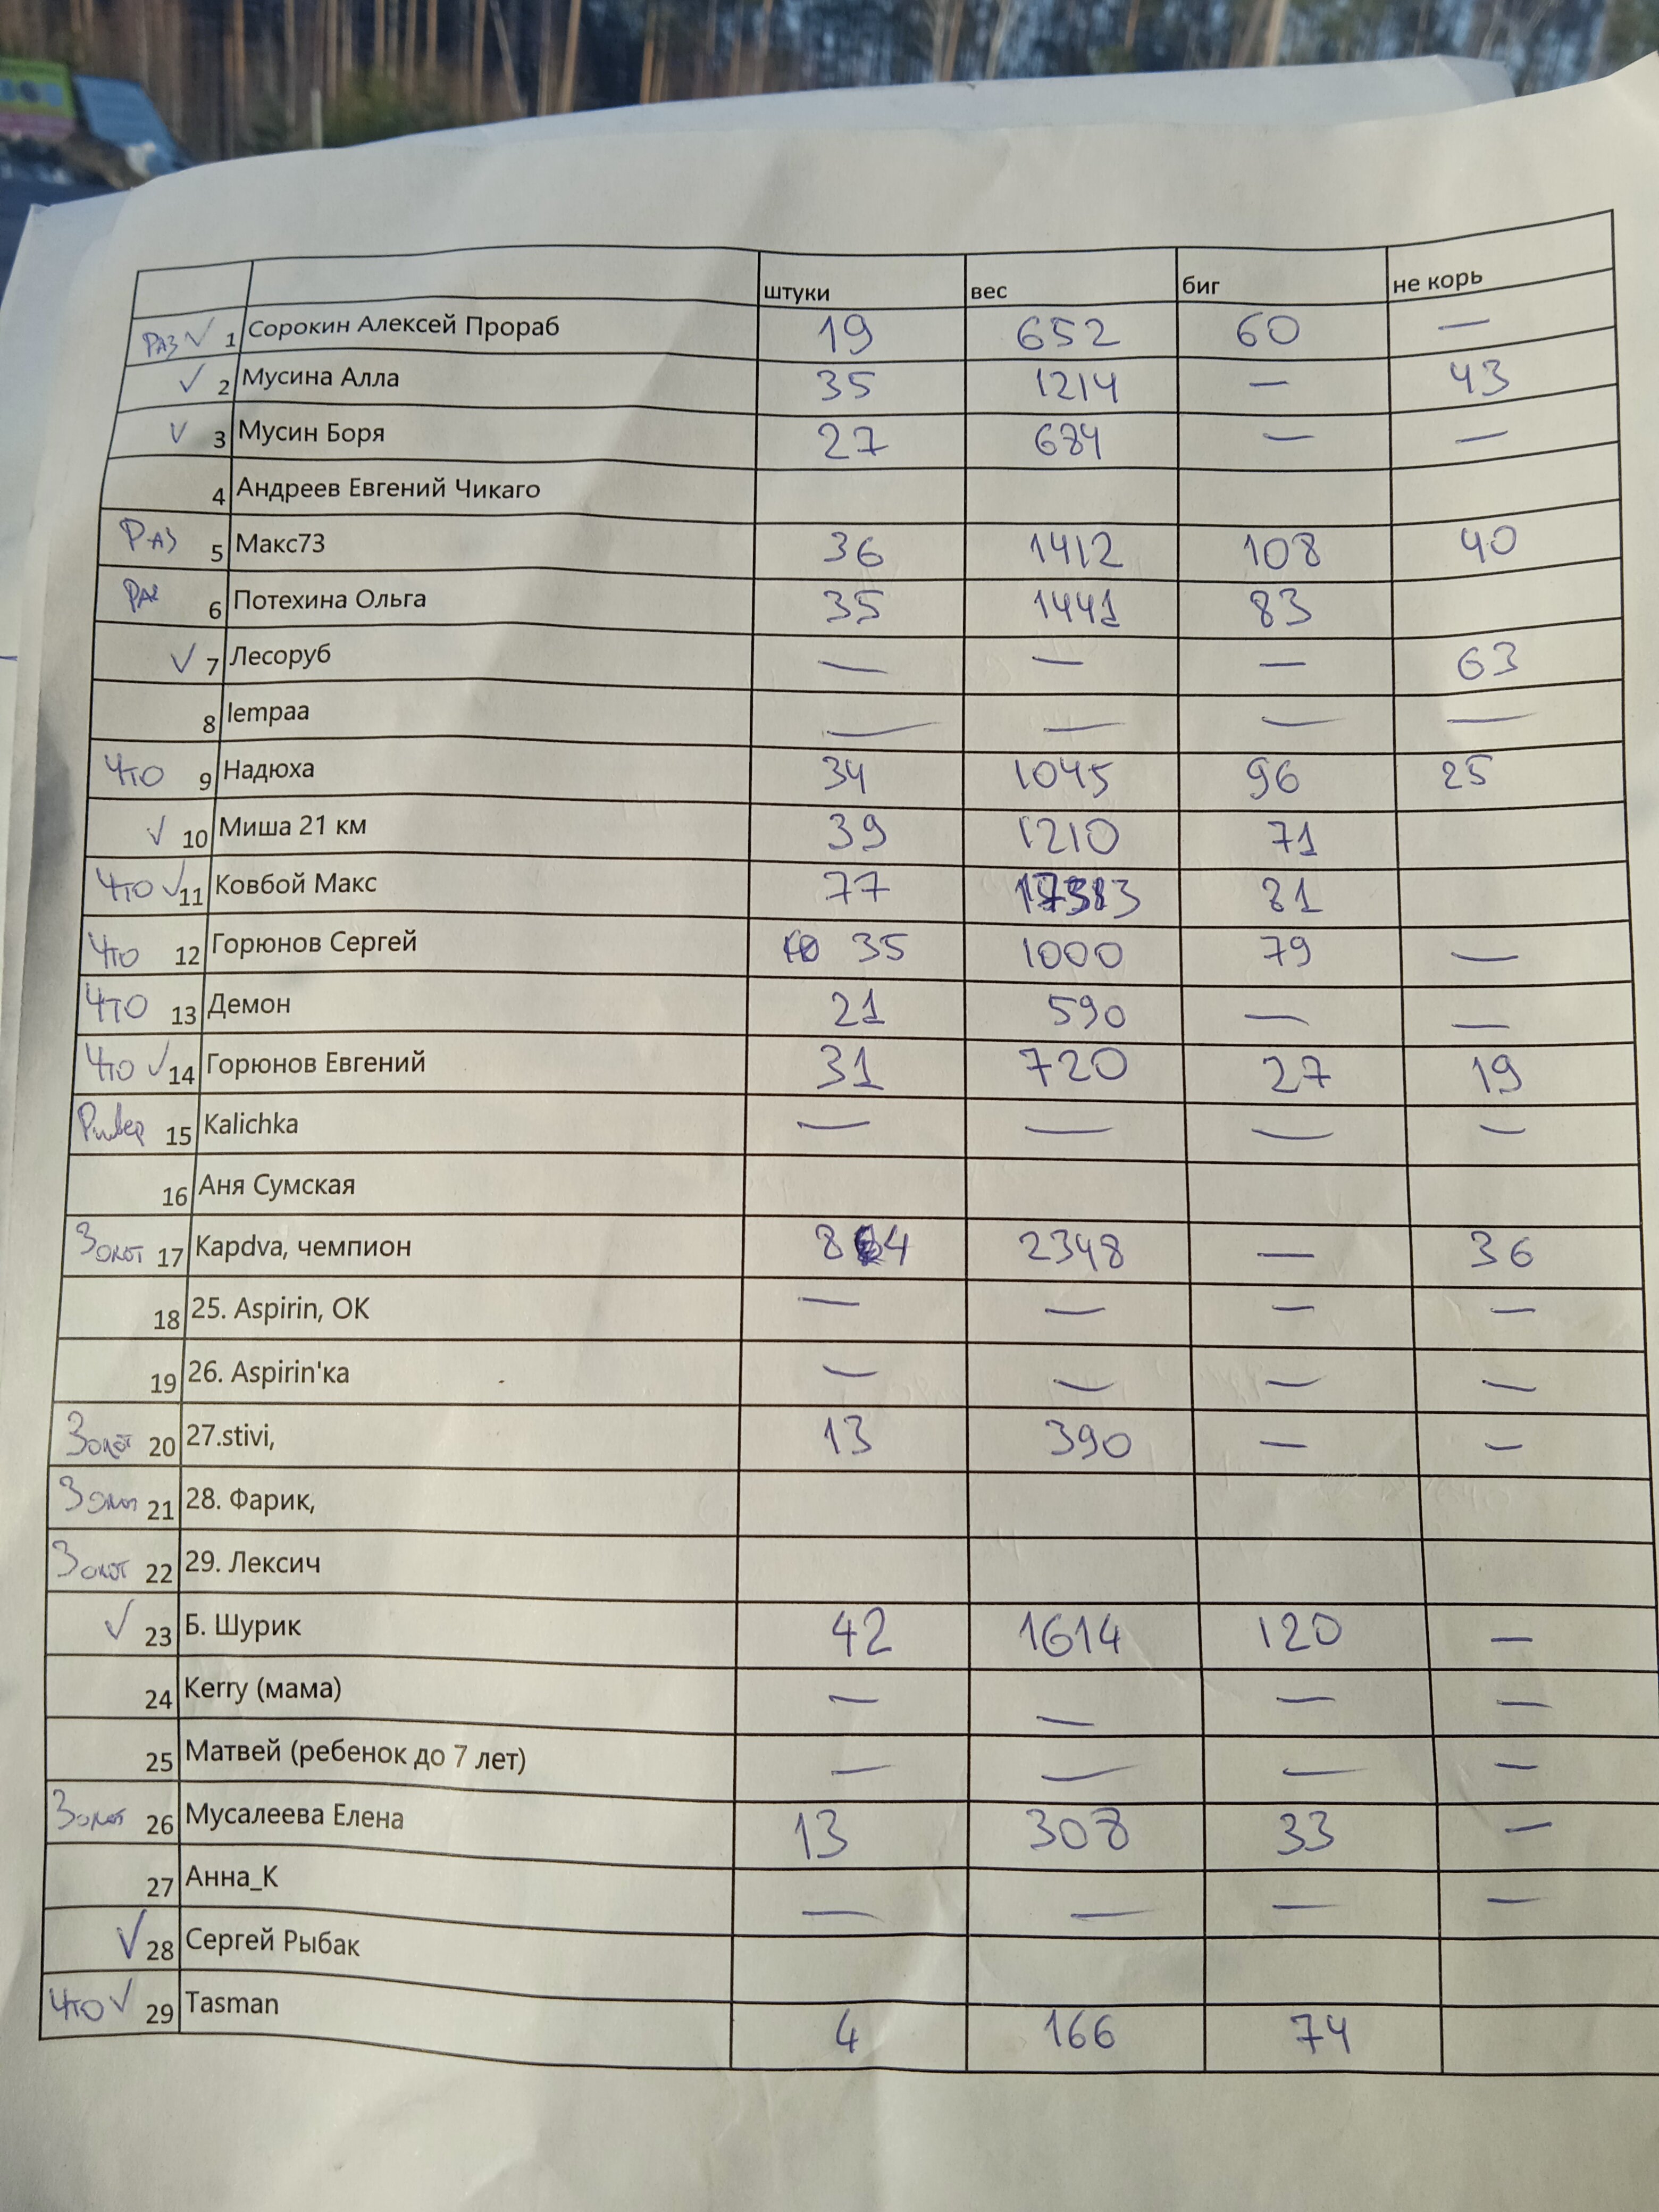 штуки вес биг не корь
Раз ✓ 1 Сорокин Алексей Прораб 19 652 60 —
✓ 2 Мусина Алла 35 1214 — 43
✓ 3 Мусин Боря 27 684 — —
4 Андреев Евгений Чикаго
Раз 5 Макс73 36 1412 108 40
Раз 6 Потехина Ольга 35 1441 83
✓ 7 Лесоруб — — — 63
8 lempaa — — — —
Что 9 Надюха 34 1045 96 25
✓ 10 Миша 21 км 39 1210 71
Что ✓ 11 Ковбой Макс 77 81
Что 12 Горюнов Сергей 35 1000 79 —
Что 13 Демон 21 590 — —
Что ✓ 14 Горюнов Евгений 31 720 27 19
Ривер 15 Kalichka — — — —
16 Аня Сумская
Золот 17 Kapdva, чемпион 84 2348 — 36
18 25. Aspirin, OK — — — —
19 26. Aspirin'ка — — — —
Золот 20 27.stivi, 13 390 — —
Золот 21 28. Фарик,
Золот 22 29. Лексич
✓ 23 Б. Шурик 42 1614 120 —
24 Kerry (мама) — — — —
25 Матвей (ребенок до 7 лет) — — — —
Золот 26 Мусалеева Елена 13 308 33 —
27 Анна_К — — — —
✓ 28 Сергей Рыбак
Что ✓ 29 Tasman 4 166 74